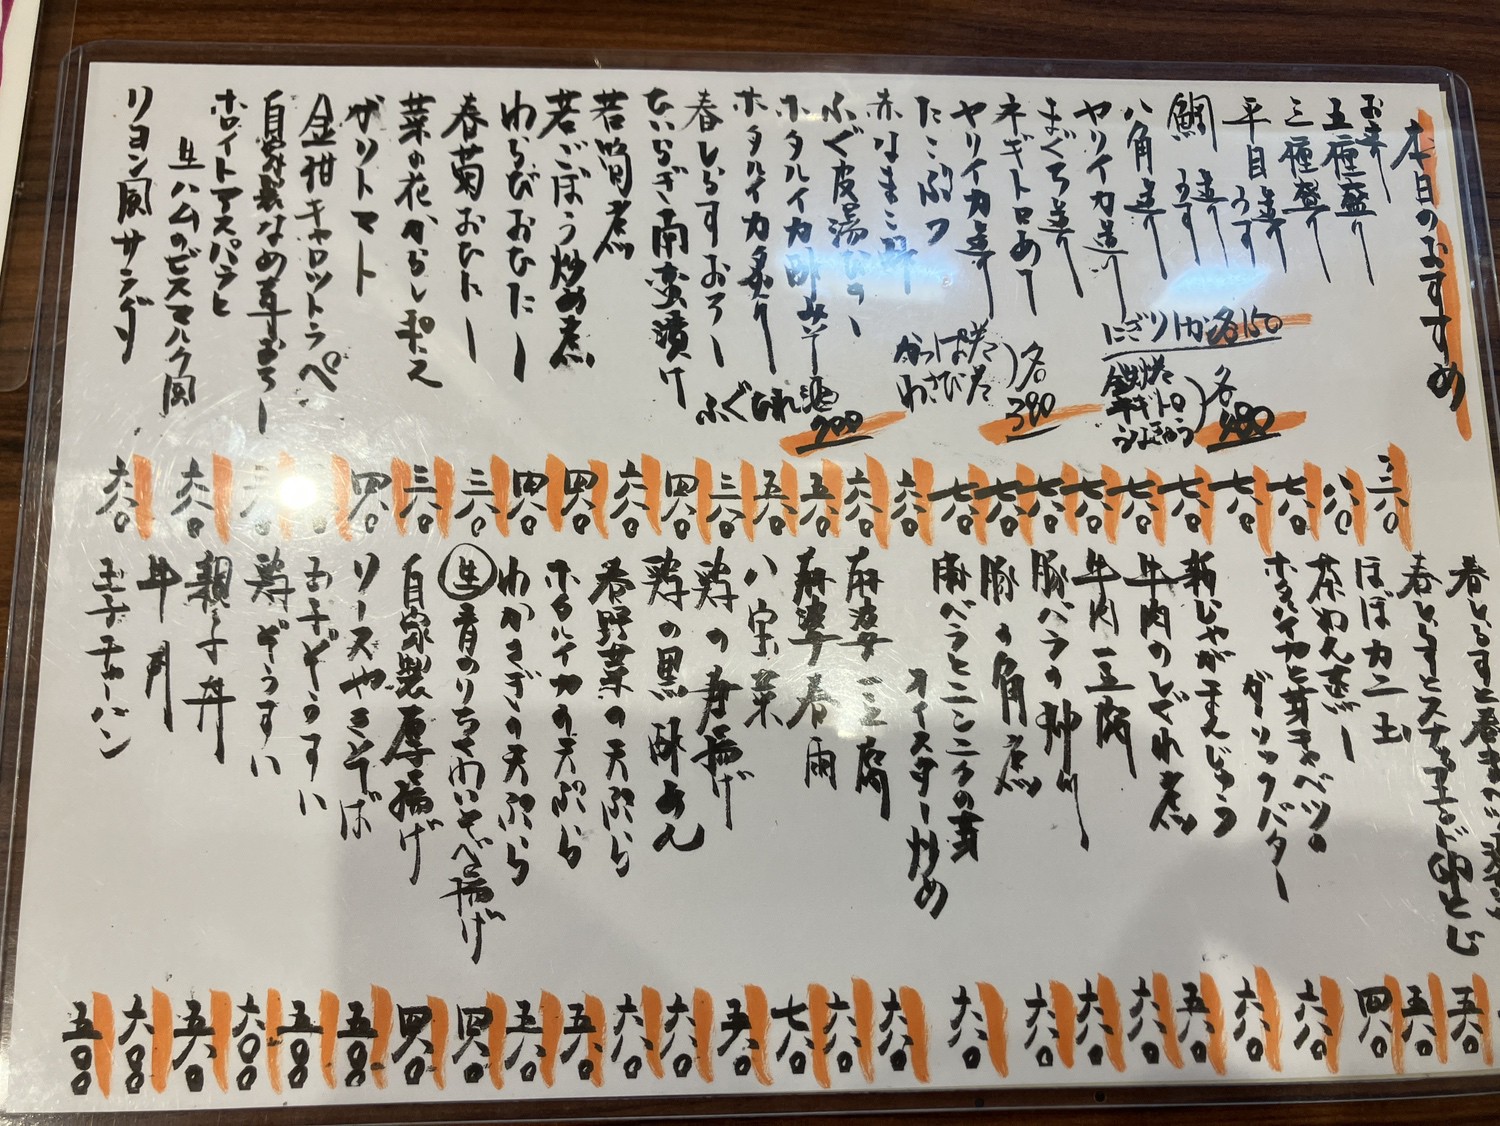 本日のおすすめ
お造り
五種盛り
三種盛り
平目造り
うす
鯛造り
うす
八角造り
ヤリイカ造り
まぐろ造り
ネギトロあて
ヤリイカ造り
たこぶつ
赤なまこ酢
ふぐ皮湯びき
ホタルイカ酢みそ
ホタルイカ炙り
春しらすおろし
ないらぎ南蛮漬け
若筍煮
若ごぼう炒め煮
わらびおひたし
春菊おひたし
菜の花からし和え
ガリトマト
金柑キャロットラペ
自家製なめ茸おろし
ホワイトアスパラと
生ハムのビスマルク風
リヨン風サラダ
にぎり1カン各150
鉄火
ネギトロ
うなきゅう
各480
かっぱ
わさび
各380
ふぐひれ酒
900
三八〇
八八〇
七八〇
七八〇
七八〇
七八〇
七八〇
七八〇
七八〇
七八〇
六八〇
六八〇
五八〇
五八〇
三八〇
四八〇
六八〇
四八〇
四八〇
三八〇
三八〇
四八〇
三八〇
六八〇
六八〇
春しらすと春キャベツ
春しらすとスナップエンドウ卵とじ
ほぼカニ玉
茶わん蒸し
ホタルイカと芽キャベツの
ガーリックバター
新じゃがまんじゅう
牛肉のしぐれ煮
牛肉豆腐
豚バラの
豚の角煮
豚バラとニンニクの芽
オイスター炒め
麻婆豆腐
麻婆春雨
八宝菜
鶏の唐揚げ
鶏の黒酢あん
春野菜の天ぷら
ホタルイカの天ぷら
わかさぎの天ぷら
生青のりちくわいそべ揚げ
自家製厚揚げ
ソースやきそば
玉子ぞうすい
鶏ぞうすい
親子丼
牛丼
玉子チャーハン
五八〇
五八〇
四八〇
六八〇
六八〇
五八〇
六八〇
六八〇
六八〇
六八〇
六八〇
六八〇
七八〇
五八〇
六八〇
六八〇
五八〇
五八〇
四八〇
四八〇
五〇〇
五〇〇
六〇〇
五八〇
六〇〇
五〇〇